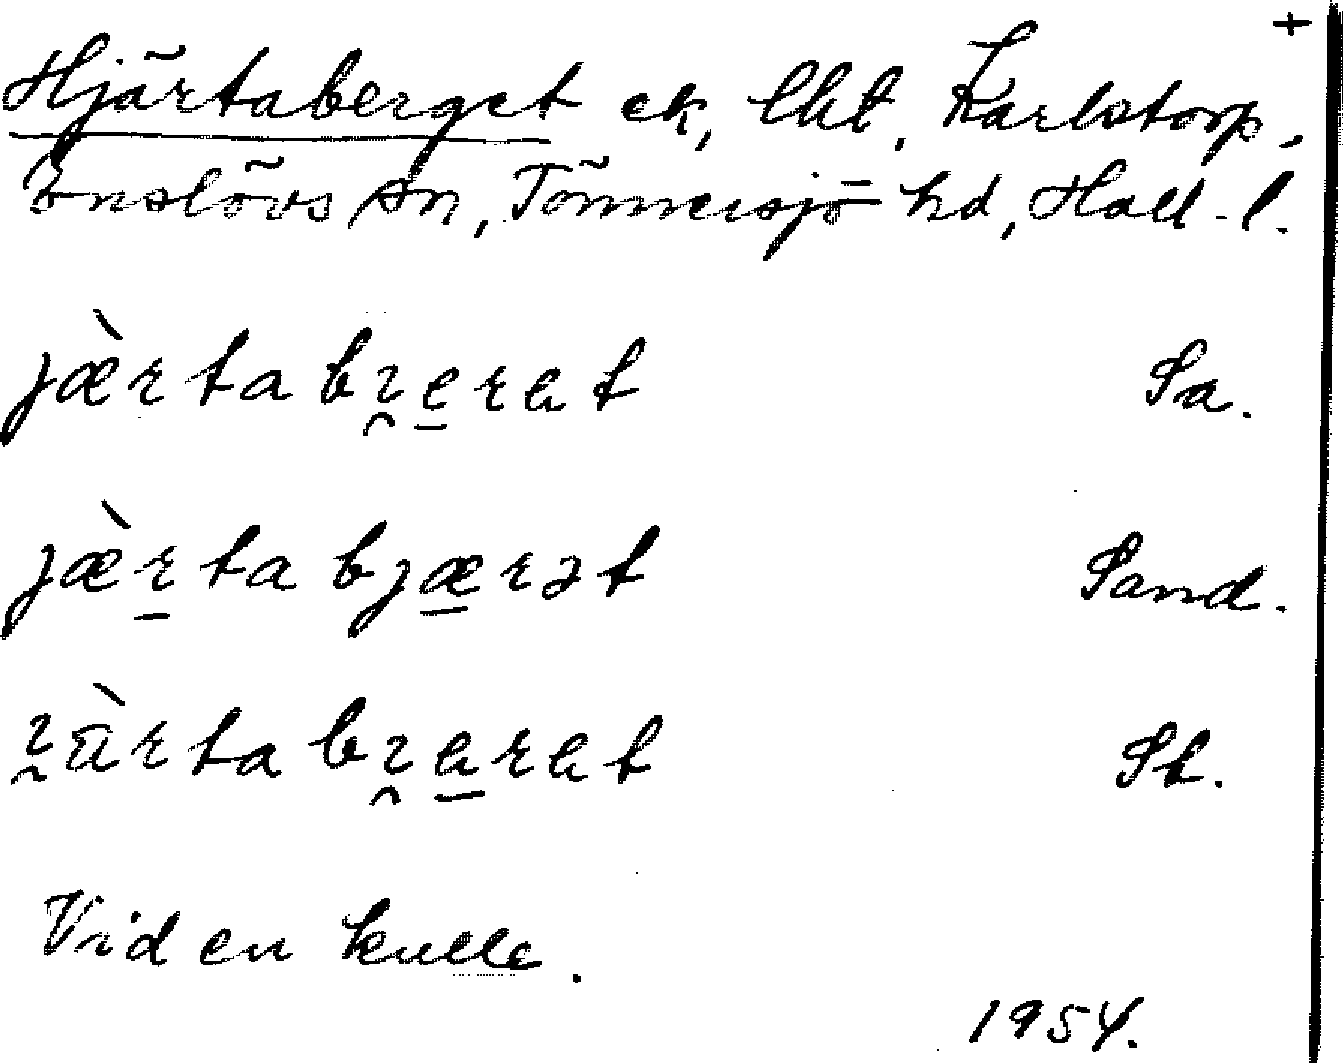 +
Hjärtaberget ek, lht, Karlstorp,
Enslövs sn, Tönnersjö hd, Hall. l.
jæ̀rtabı̯e̲ret Sa.
jæ̀r̲tabjæ̲rət Sand.
ı̯ä̀rtabı̯e̲ret St.
Vid en kulle.
1954.